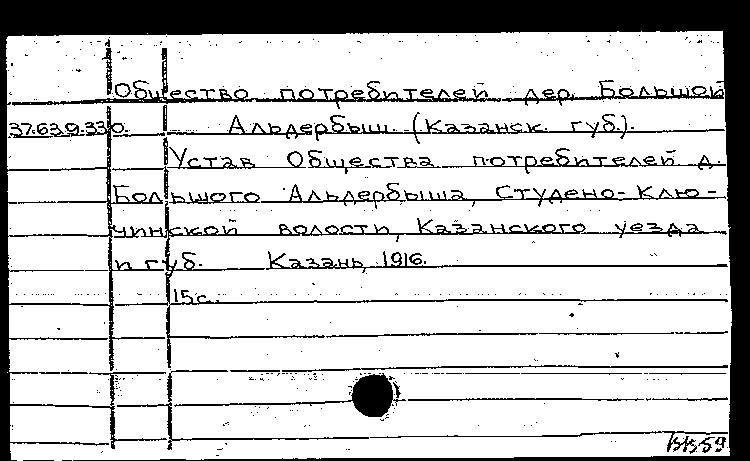 Общество потребителей дер. Большой
37.63.9.330. Альдербыш (Казанск. губ.).
Устав Общества потребителей д.
Большого Альдербыша, Студено-Клю-
чинской волости, Казанского уезда
и губ. Казань, 1916.
15с.